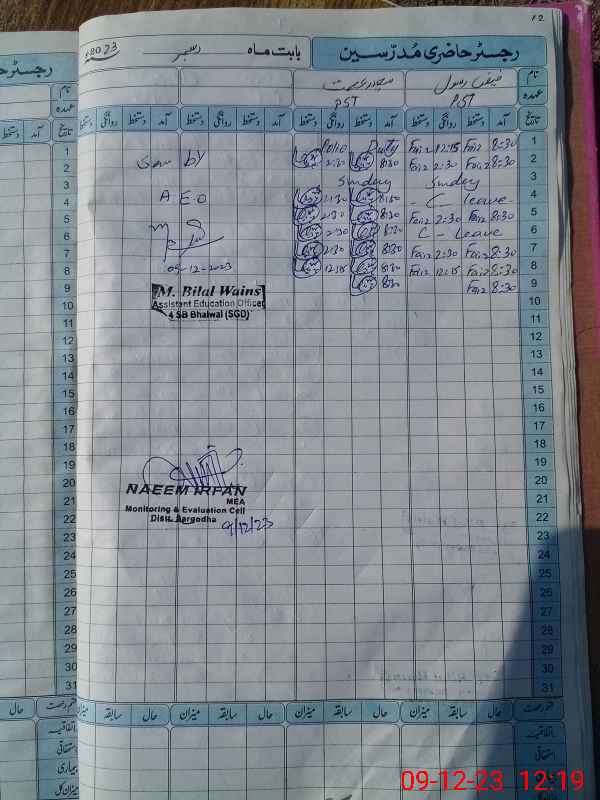 12
رجسٹر حاضری مُدرّسین
بابت ماہ دسمبر 2023
نام فیض رسول
عہدہ PST PST
تاریخ آمد دستخط روانگی دستخط آمد دستخط روانگی دستخط آمد دستخط روانگی دستخط
1 8:30 Faiz 12:15 Faiz Duty Polio
2 8:30 Faiz 2:30 Faiz 8:30 2:30
Seen by
3 Sunday Sunday
4 leave C 8:30 2:30
A E O
5 8:30 Faiz 2:30 Faiz 8:30 2:30
6 C - Leave 8:30 2:30
7 8:30 Faiz 2:30 Faiz 8:30 2:30
8 8:30 Faiz 12:15 Faiz 8:30 12:15
09-12-2023
9 8:30 Faiz 8:30
M. Bilal Wains
Assistant Education Officer
4 SB Bhalwal (SGD)
10
11
12
13
14
15
16
17
18
19
20
NAEEM IRFAN
MEA
21
Monitoring & Evaluation Cell
Distt. Sargodha
22
9/12/23
23
24
25
26
27
28
29
30
31
قسم رخصت حال سابقہ میزان حال سابقہ میزان حال سابقہ میزان
اتفاقیہ
استحقاقی
بیماری
میزان کل
09-12-23 12:19